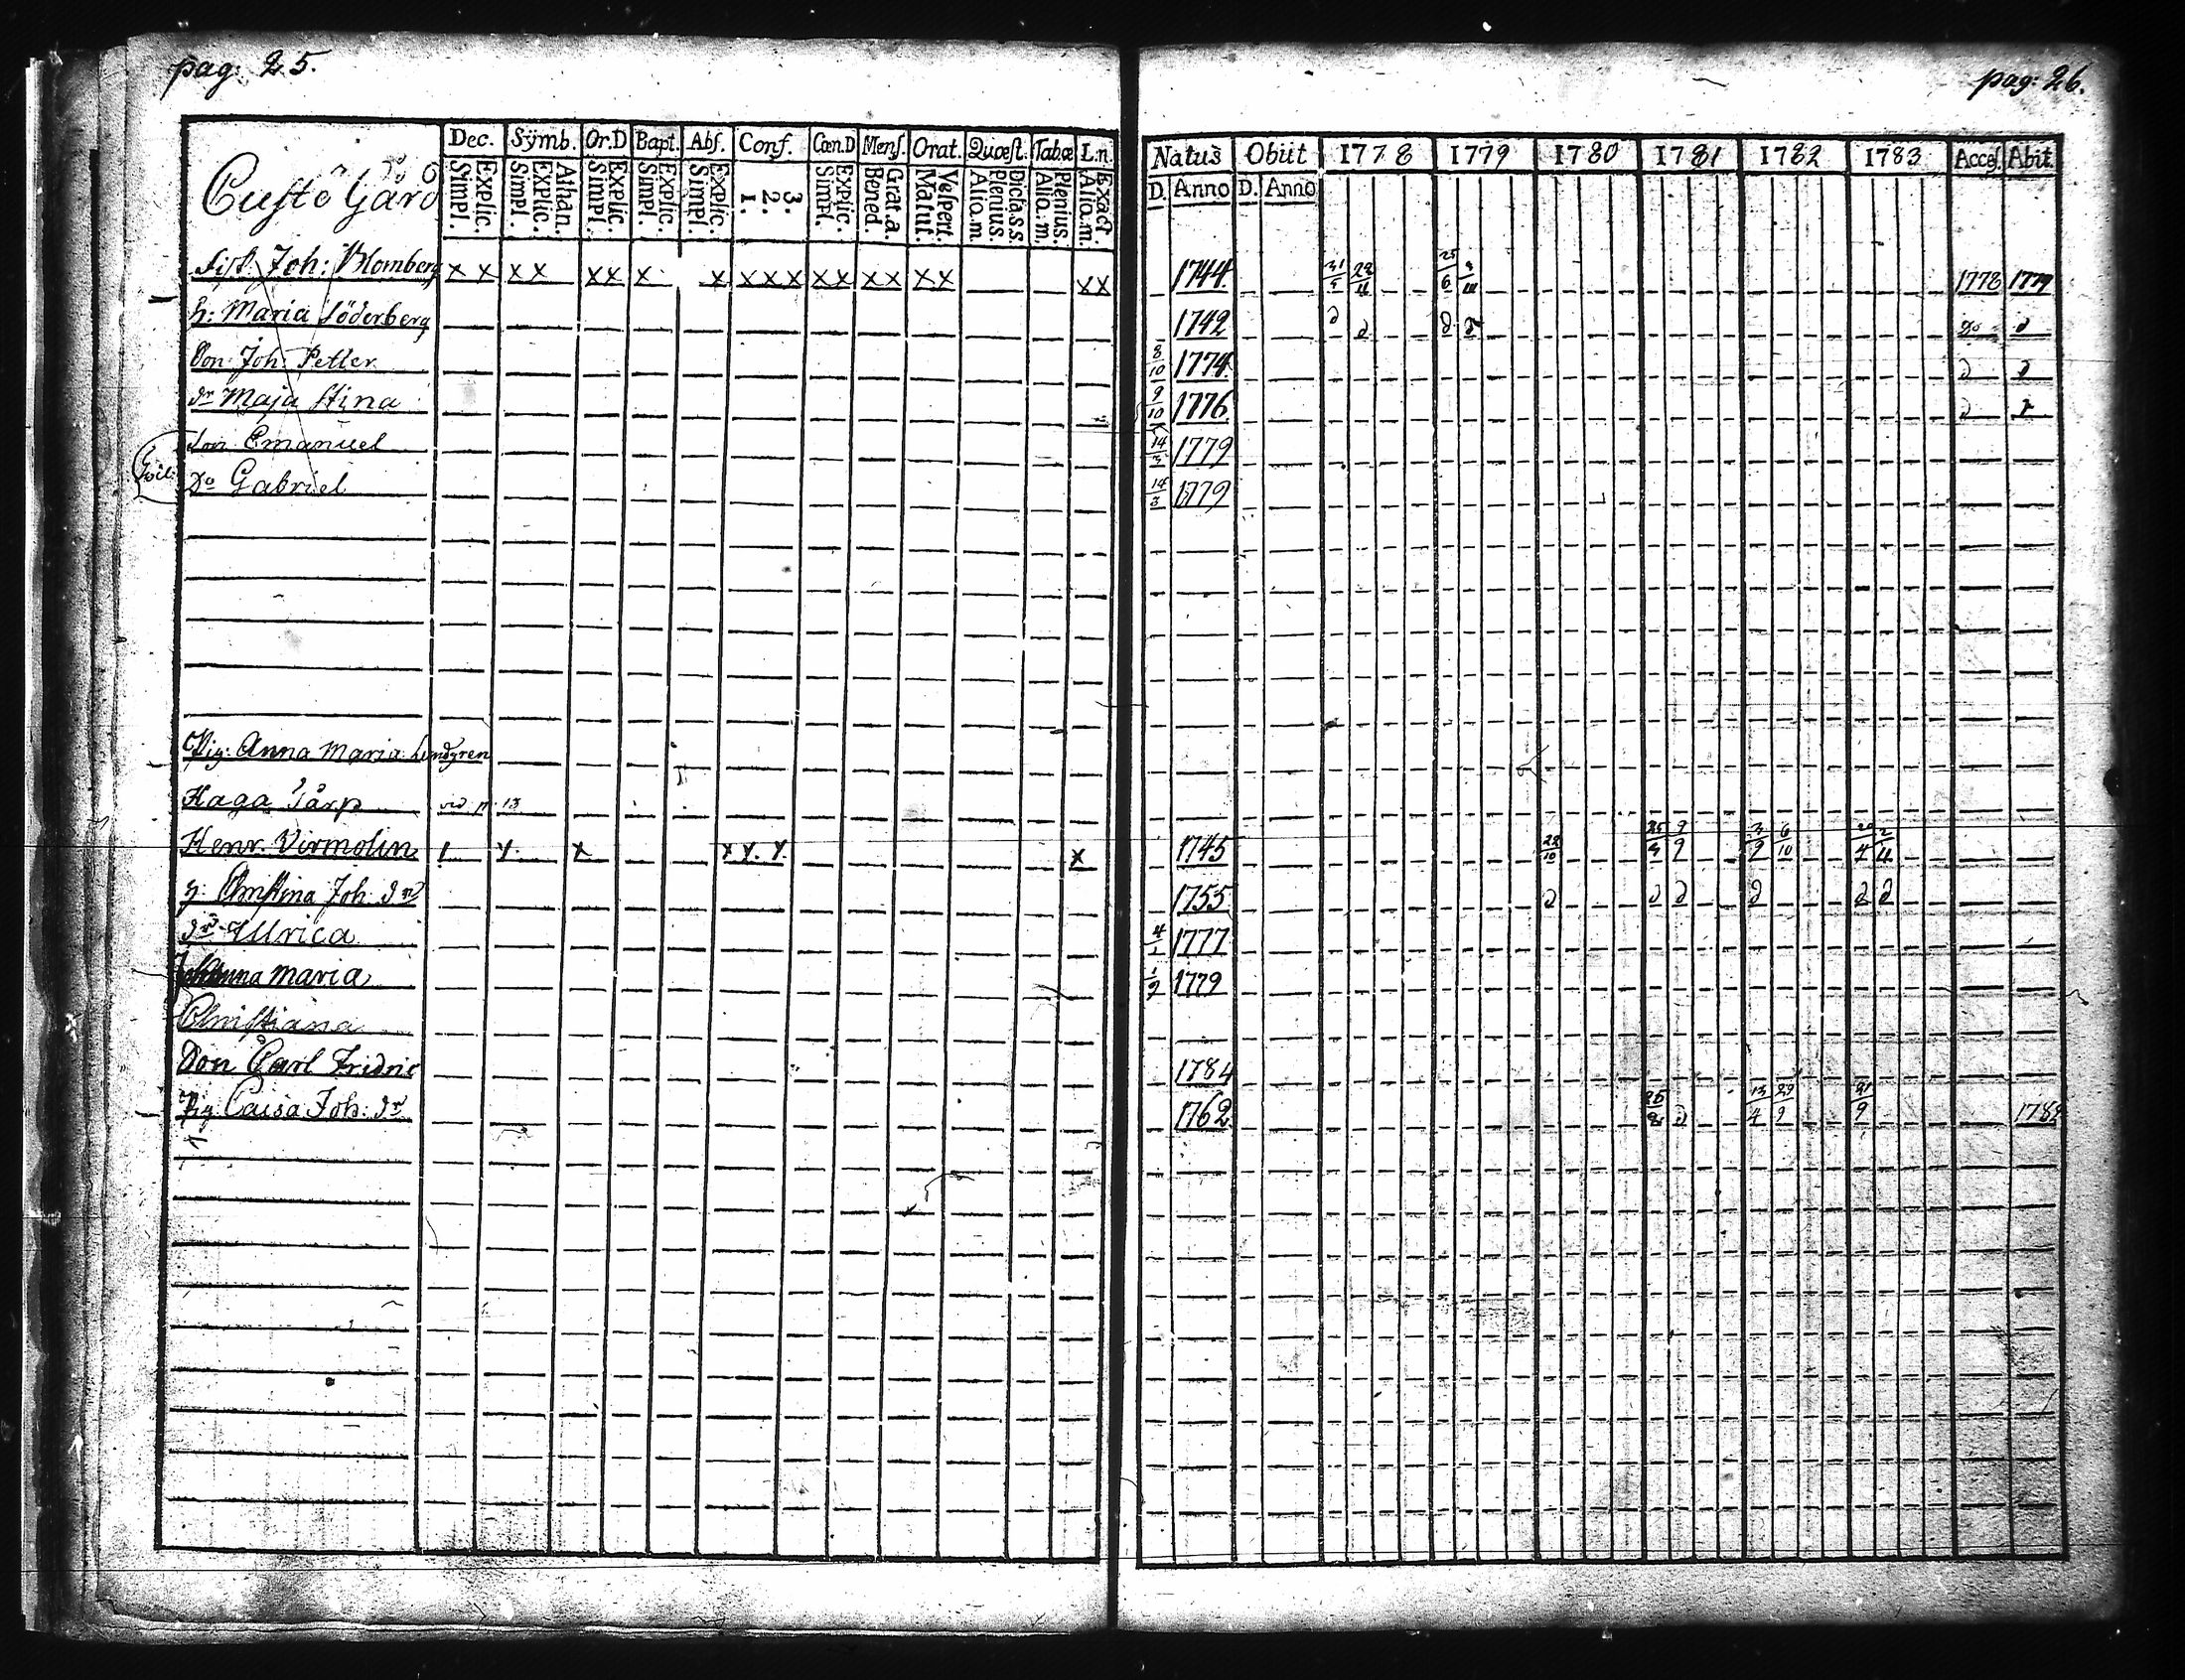 pag: 25.
Custö Gård
Dec. Sÿmb. Or.D Bapt. Abſ. Conf. Cœn.D Menſ. Orat. Quœſt. Tab.œ L.n.
Simpl. Explic. Simpl. Explic. Athan. Simpl. Explic. Simpl. Explic. Simpl. Explic. 1. 2. 3. Simpl. Explic. Bened. Grat.a. Matut. Veſpert. Alio.m. Plenius. Dicta.s.s. Alio.m. Plenius. Alio.m. Exact.
Joh: Blomberg x x x x x x x x x x x x x x x x x x x
h: Maria Söderberg
Son Joh: Petter
dr Maja Stina
son Emanuel
Do Gabriel
Pig: Anna Maria Lundgren
Haga Tårp vid p. 13
Henr. Virmolin x x x x
h: Christina Joh: dr
dr Ulrica
Anna Maria
Christiana
Son Carl Fridric
Pig Caisa Joh: dr
pag: 26.
Natus Obiit 1778 1779 1780 1781 1782 1783 Acceſ. Abit
D. Anno D. Anno
1744 25/6 1778 1779
1742 d d d d do d
8/10 1774 d d
9/10 1776 d
14/3 1779
14/3 1779
1745 22/10 9/9 3/9 6/10 2/11
1755 d d d d d d
4/1 1777
1/9 1779
1784
1762 d 13/4 29/9 21/9